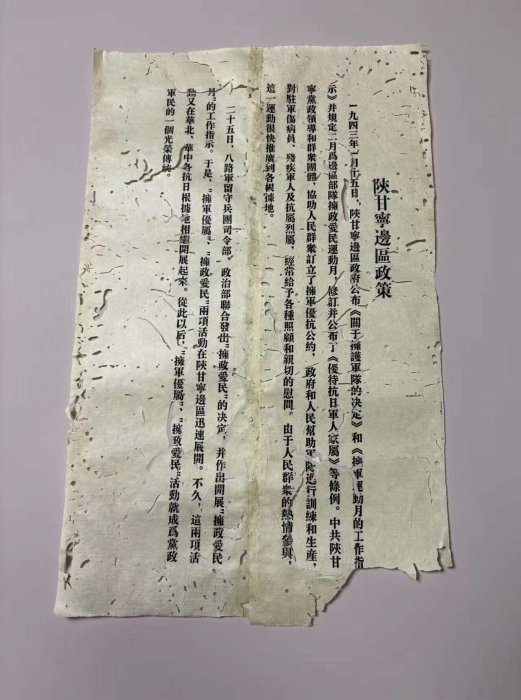 陝甘寧邊區政策
一九四三年一月十五日，陝甘寧邊區政府公布《關于擁護軍隊的决定》和《擁軍運動月的工作指
示》并規定二月爲邊區部隊擁政愛民運動月，修訂并公布了《優待抗日軍人家屬》等條例。中共陝甘
寧黨政領導和群衆團體，協助人民群衆訂立了擁軍優抗公約，政府和人民幫助軍隊進行訓練和生産，
對駐軍傷病員、殘疾軍人及抗屬烈屬，經常給予各種照顧和親切的慰問。由于人民群衆的熱情參與，
這一運動很快推廣到各根據地。
二十五日，八路軍留守兵團司令部、政治部聯合發出“擁政愛民”的决定，并作出開展“擁政愛民
月”的工作指示。于是，“擁軍優屬”、“擁政愛民”兩項活動在陝甘寧邊區迅速展開。不久，這兩項活
動又在華北、華中各抗日根據地相繼開展起來。從此以后，“擁軍優屬”、“擁政愛民”活動就成爲黨政
軍民的一個光榮傳統。